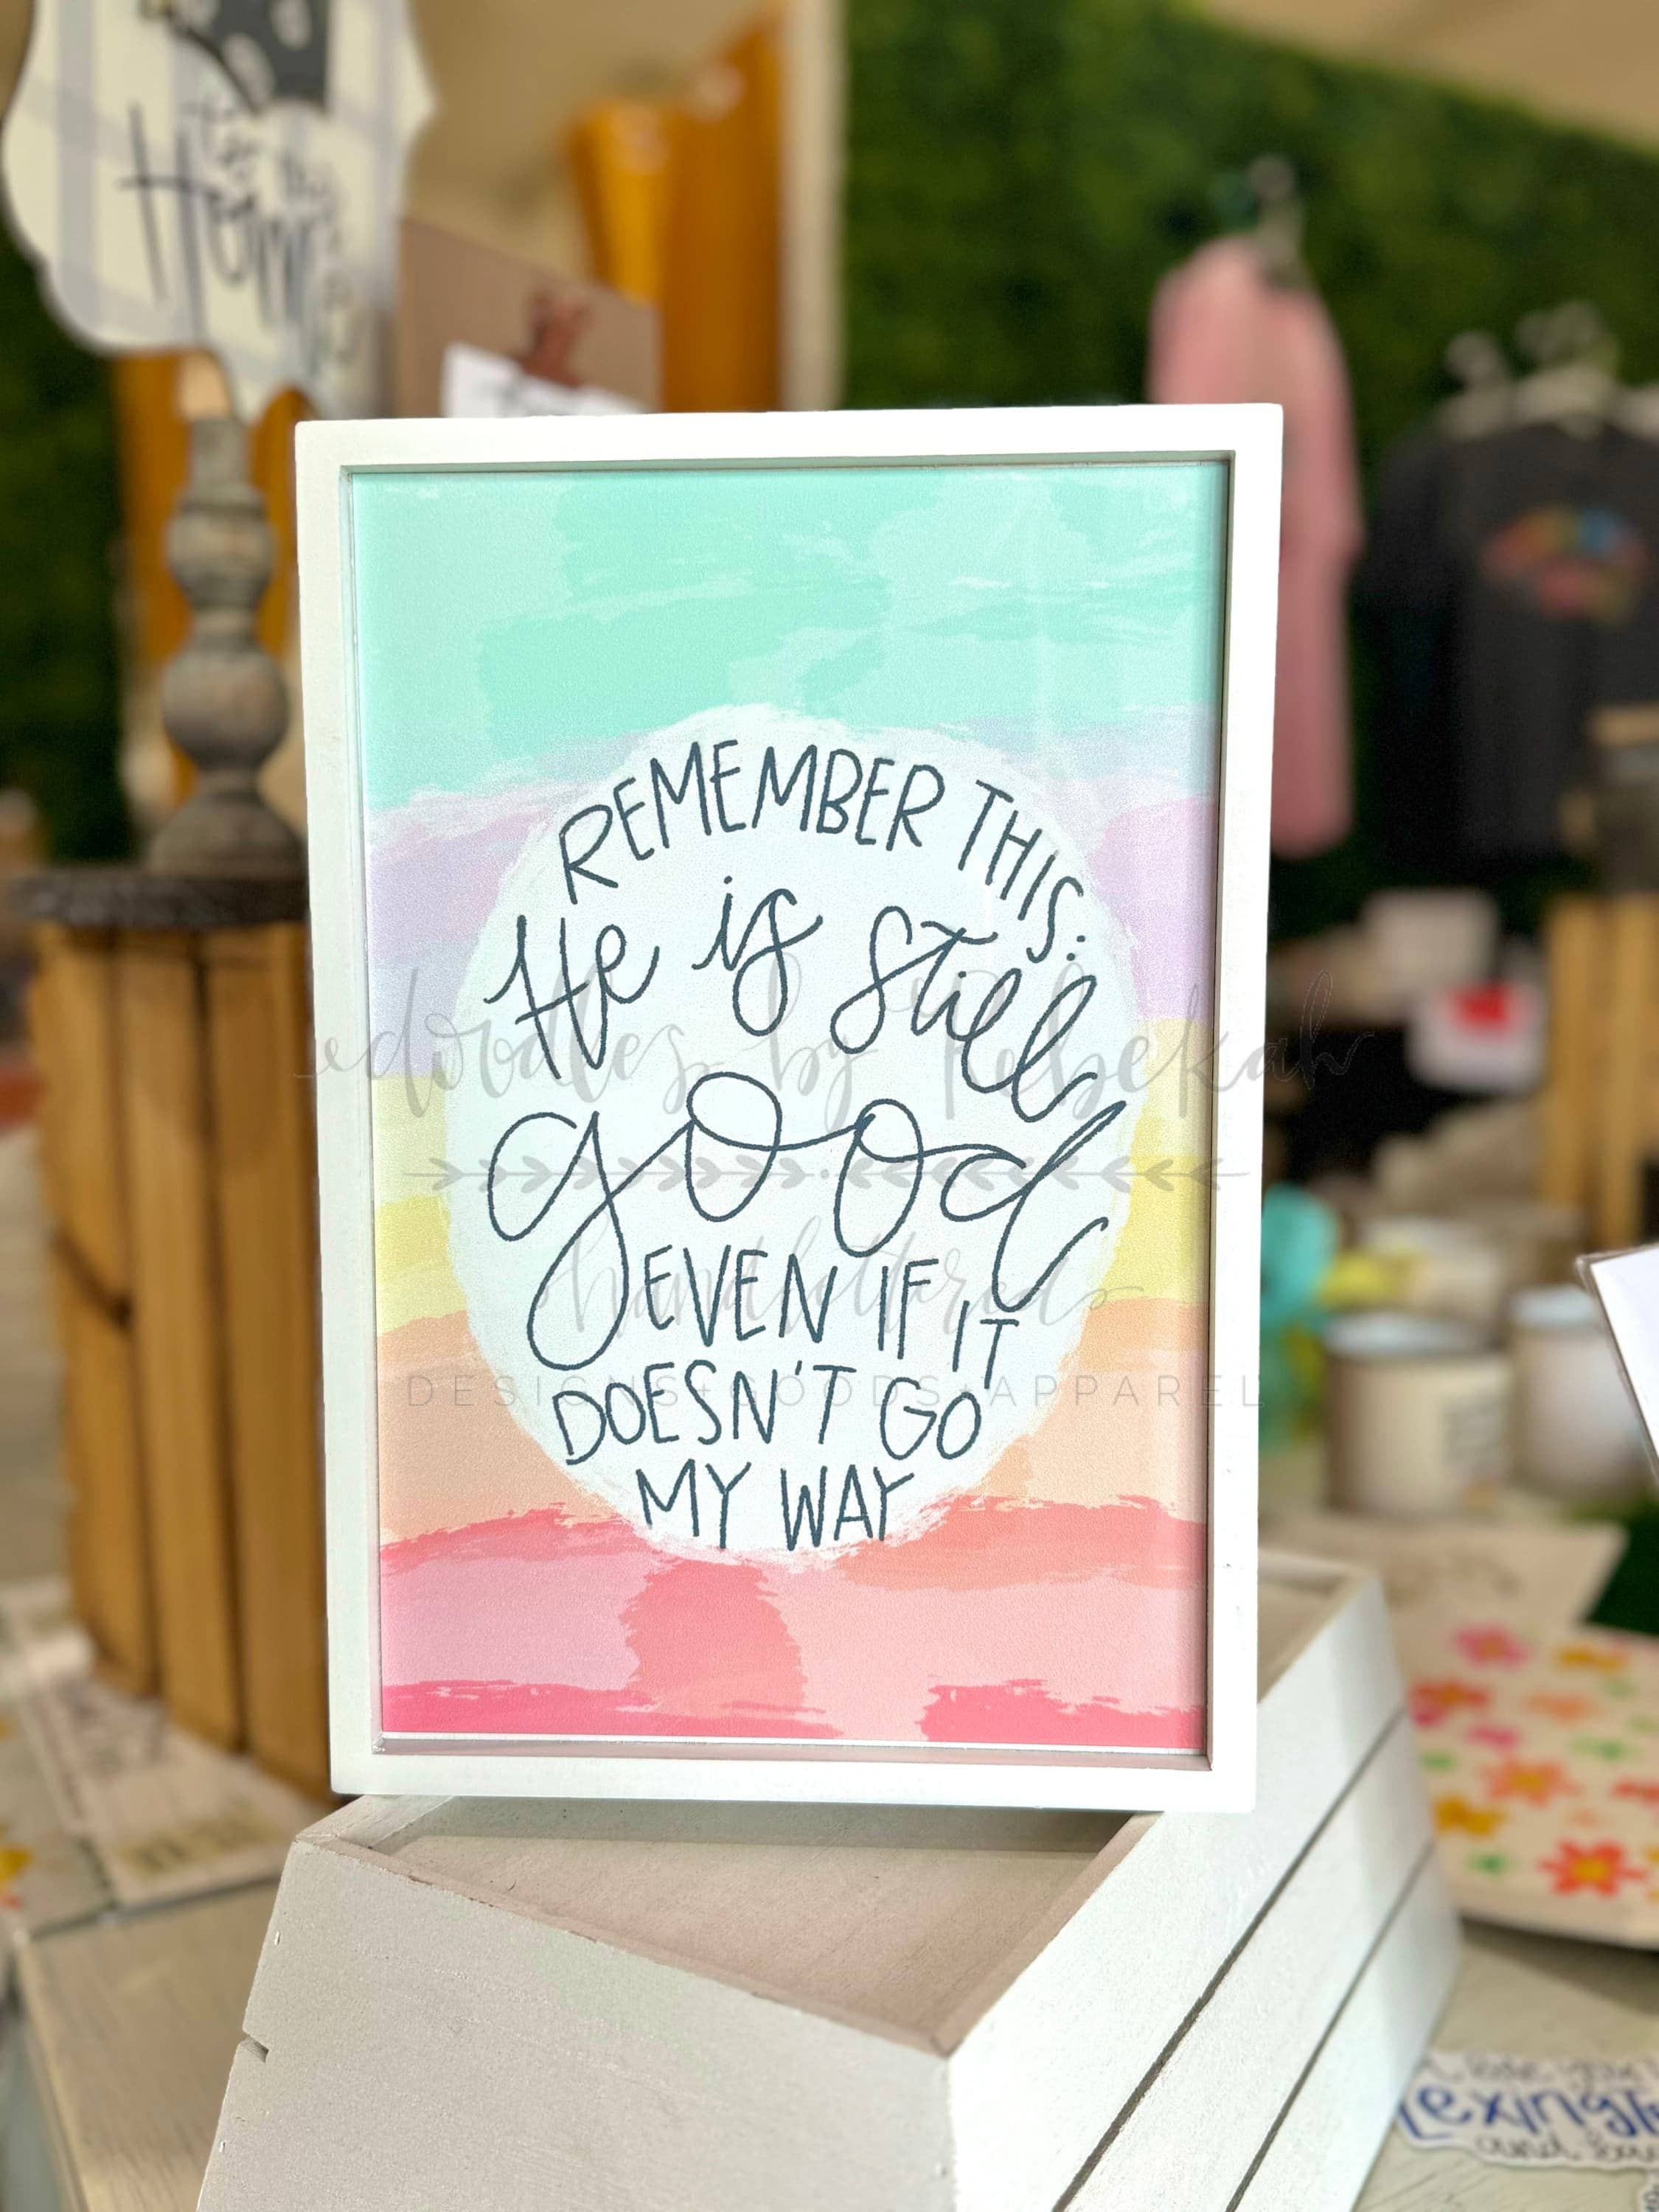 to the
Home
REMEMBER THIS:
He is still
good
EVEN IF IT
DOESN'T GO
MY WAY
doodles by Rebekah
handlettered
DESIGNS+GOODS+APPAREL